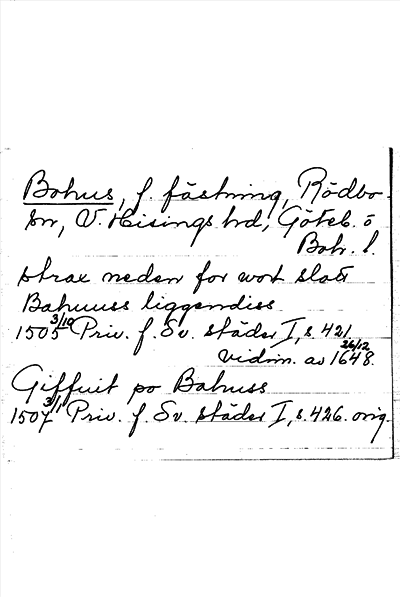 Bohus, f. fästning, Rödbo
sn, V. Hisings hd, Göteb. o
Boh. l.
strax neden for wort slott
Bahuuss liggendiss
1505 3/10 Priv. f. Sv. städer I, s. 421
vidim. av 26/12 1648.
Giffuit po Bahuss
1507 3/1 Priv. f. Sv. städer I, s. 426. orig.